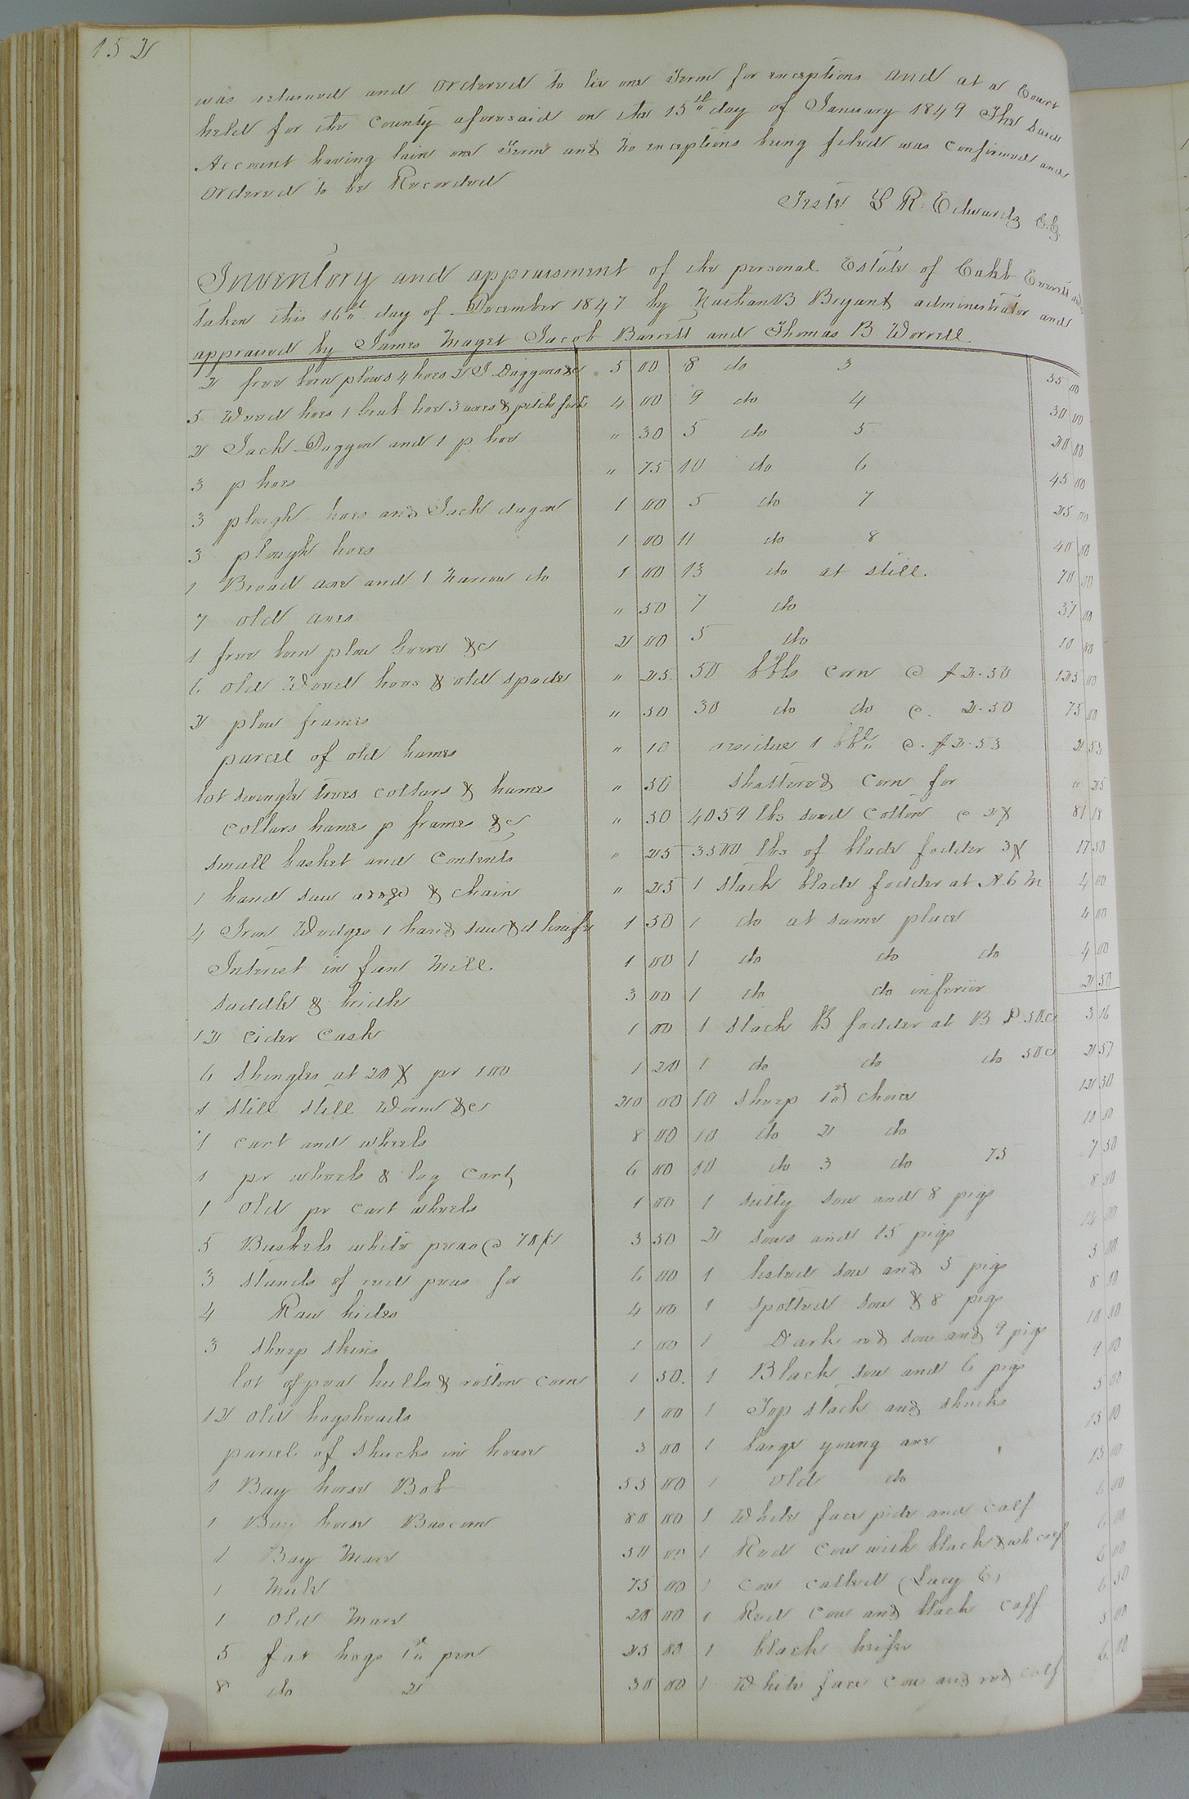 152
was returned and ordered to lie one Term for exceptions and at a Court
held for the County aforesaid on the 15th day of January 1849 The Same
Account having lain one Term and no exceptions being filed was confirmed and
Ordered to be Recorded
Teste L R. Edwards C.C.
Inventory and appraisement of the personal Estate of Everett
taken this 16th day of December 1847 by B Bryant administrator and
appraised by James Maget Jacob Barrett and Thomas B. Worrell.
2 free born plows 4 hoes 2 J Daggons &c 5 00
5 Weed hoes 1 hoe 3 axes & pitch fork 4 00
2 Jack Daggon and 1 p hoe " 30
3 p hoes " 75
3 plough hoes and Jack dagon 1 00
3 plough hoes 1 00
1 Broad axe and 1 Narrow do 1 00
7 old axes " 50
1 free born plow &c 2 00
6 old Weed hoes & old spade " 25
2 plow frames " 50
parcel of old hames " 10
lot swingle trees collars & hames " 50
collars hames p frame &c " 50
small basket and contents " 25
1 hand saw & chain " 25
4 Iron Wedges 1 hand saw & d knife 1 50
Interest in fan Mill. 1 00
saddle & bridle 3 00
12 cider cask 1 00
6 shingles at 20 ¢ pr 100 1 20
1 still still Worm &c 20 00
1 cart and wheels 8 00
1 pr wheels & log Cart 6 00
1 Old pr cart wheels 1 00
5 Bushels white peas @ 70¢ 3 50
3 stands of red peas for 6 00
4 Raw hides 4 00
3 sheep skins 1 00
lot of pea hulls & rotten corn 1 50
12 old hogsheads 1 00
parcel of shucks in house 3 00
1 Bay horse Bob 55 00
1 Bay horse 80 00
1 Bay Mare 50 00
1 Mule 75 00
1 Old Mare 20 00
5 fat hogs 1st pen 25 00
8 do 2 30 00
8 do 3 35 00
9 do 4 30 00
5 do 5 20 00
10 do 6 45 00
5 do 7 25 00
11 do 8 40 00
13 do at still. 70 00
7 do 37 00
5 do 10 00
50 bbls corn @ $2.50 125 00
30 do do @. 2.50 75 00
residue 1 bbl @. $2.53 2 53
shattered corn for " 25
4059 lbs seed cotton @ 2¢ 81 18
3500 lbs of blade fodder 17 50
1 stack blade fodder at 4 00
1 do at same place 4 00
1 do do do 4 00
1 do do inferior 2 50
1 stack B fodder at B P 50c 3 16
1 do do do 50c 2 57
10 sheep 1st choice 12 50
10 do 2 do 10 00
10 do 3 do 75 7 50
1 sow and 8 pigs 8 00
2 sows and 15 pigs
1 sow and 5 pigs 5 00
1 spotted sow & 8 pigs 8 00
1 Dark red sow and 9 pigs 10 00
1 Black sow and 6 pigs 9 00
1 Top stack and shucks 5 00
1 large young axe 15 00
1 old do 15 00
1 White face and calf 6 00
1 Red cow with black & wh calf 6 00
1 cow called (Lucy E) 6 00
1 Red cow and black calf 6 50
1 black heifer 5 00
1 White face cow and red calf 6 00